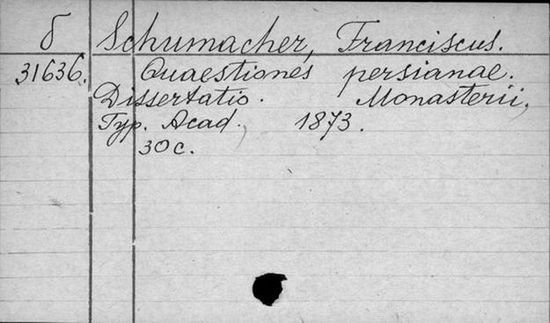 б Schumacher, Franciscus.
31636. Quaestiones persianae.
Dissertatio. Monasterii,
Typ. Acad., 1873.
30 c.